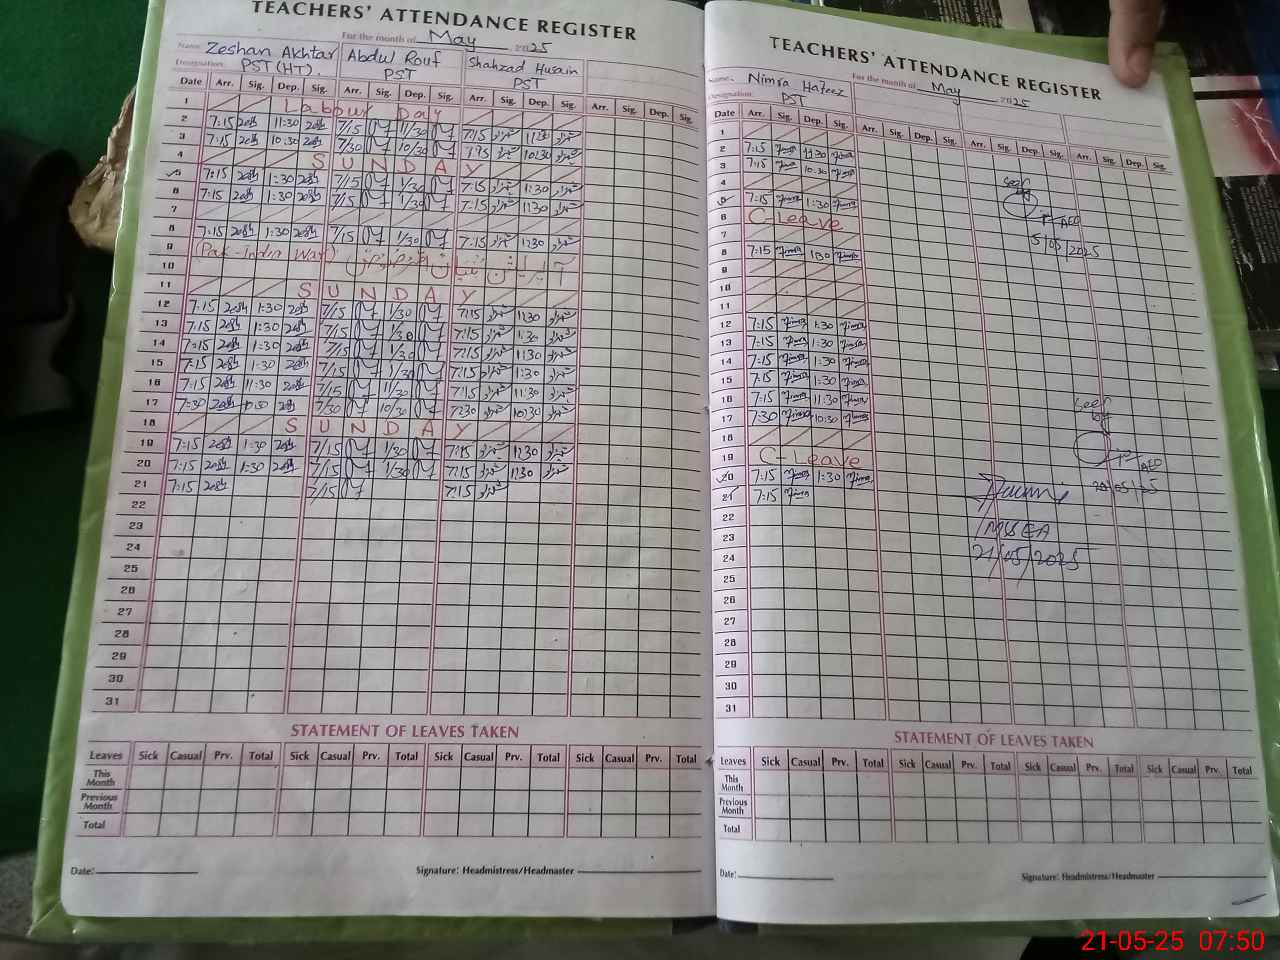 TEACHERS' ATTENDANCE REGISTER
For the month of May 2025
Name: Zeshan Akhtar Abdul Rouf Shahzad Husain
Designation: PST (HT). PST PST
Date Arr. Sig. Dep. Sig. Arr. Sig. Dep. Sig. Arr. Sig. Dep. Sig. Arr. Sig. Dep. Sig.
1 Labour Day
2 7:15 11:30 7/15 11/30 7:15 11:30
3 7:15 10:30 7/30 10/30 10:30
4 SUNDAY
5 7:15 1:30 7/15 1/30 7:15 1:30
6 7:15 1:30 7/15 1/30 7:15 1:30
7
8 7:15 1:30 7/15 1/30 7:15 1:30
9 (Pak-India War)
10
11 SUNDAY
12 7:15 1:30 7/15 1/30 7:15 1:30
13 7:15 1:30 7/15 1/30 7:15 1:30
14 7:15 1:30 7/15 1/30 7:15 1:30
15 7:15 1:30 7/15 1/30 7:15 1:30
16 7:15 11:30 7/15 11/30 7:15 11:30
17 7:30 10:30 7/30 10/30 7:30 10:30
18 SUNDAY
19 7:15 1:30 7/15 1/30 7:15 1:30
20 7:15 1:30 7/15 1/30 7:15 1:30
21 7:15 7/15 7:15
22
23
24
25
26
27
28
29
30
31
STATEMENT OF LEAVES TAKEN
Leaves Sick Casual Prv. Total Sick Casual Prv. Total Sick Casual Prv. Total Sick Casual Prv. Total
This Month
Previous Month
Total
Date: Signature: Headmistress/Headmaster
TEACHERS' ATTENDANCE REGISTER
Name: Nimra Hafeez For the month of May 2025
Designation: PST
Date Arr. Sig. Dep. Sig. Arr. Sig. Dep. Sig. Arr. Sig. Dep. Sig. Arr. Sig. Dep. Sig.
1
2 7:15 11:30
3 7:15 10:30
4
5 7:15 1:30
6 C-Leave
7
8 7:15 1:30
9
10
11
12 7:15 1:30
13 7:15 1:30
14 7:15 1:30
15 7:15 1:30
16 7:15 11:30
17 7:30 10:30
18
19 C-Leave
20 7:15 1:30
21 7:15
22
23
24
25
26
27
28
29
30
31
Seen by
AEO
5/05/2025
Seen by
AEO
20/05/25
MSEA
21/05/2025
STATEMENT OF LEAVES TAKEN
Leaves Sick Casual Prv. Total Sick Casual Prv. Total Sick Casual Prv. Total Sick Casual Prv. Total
This Month
Previous Month
Total
Date: Signature: Headmistress/Headmaster
21-05-25 07:50